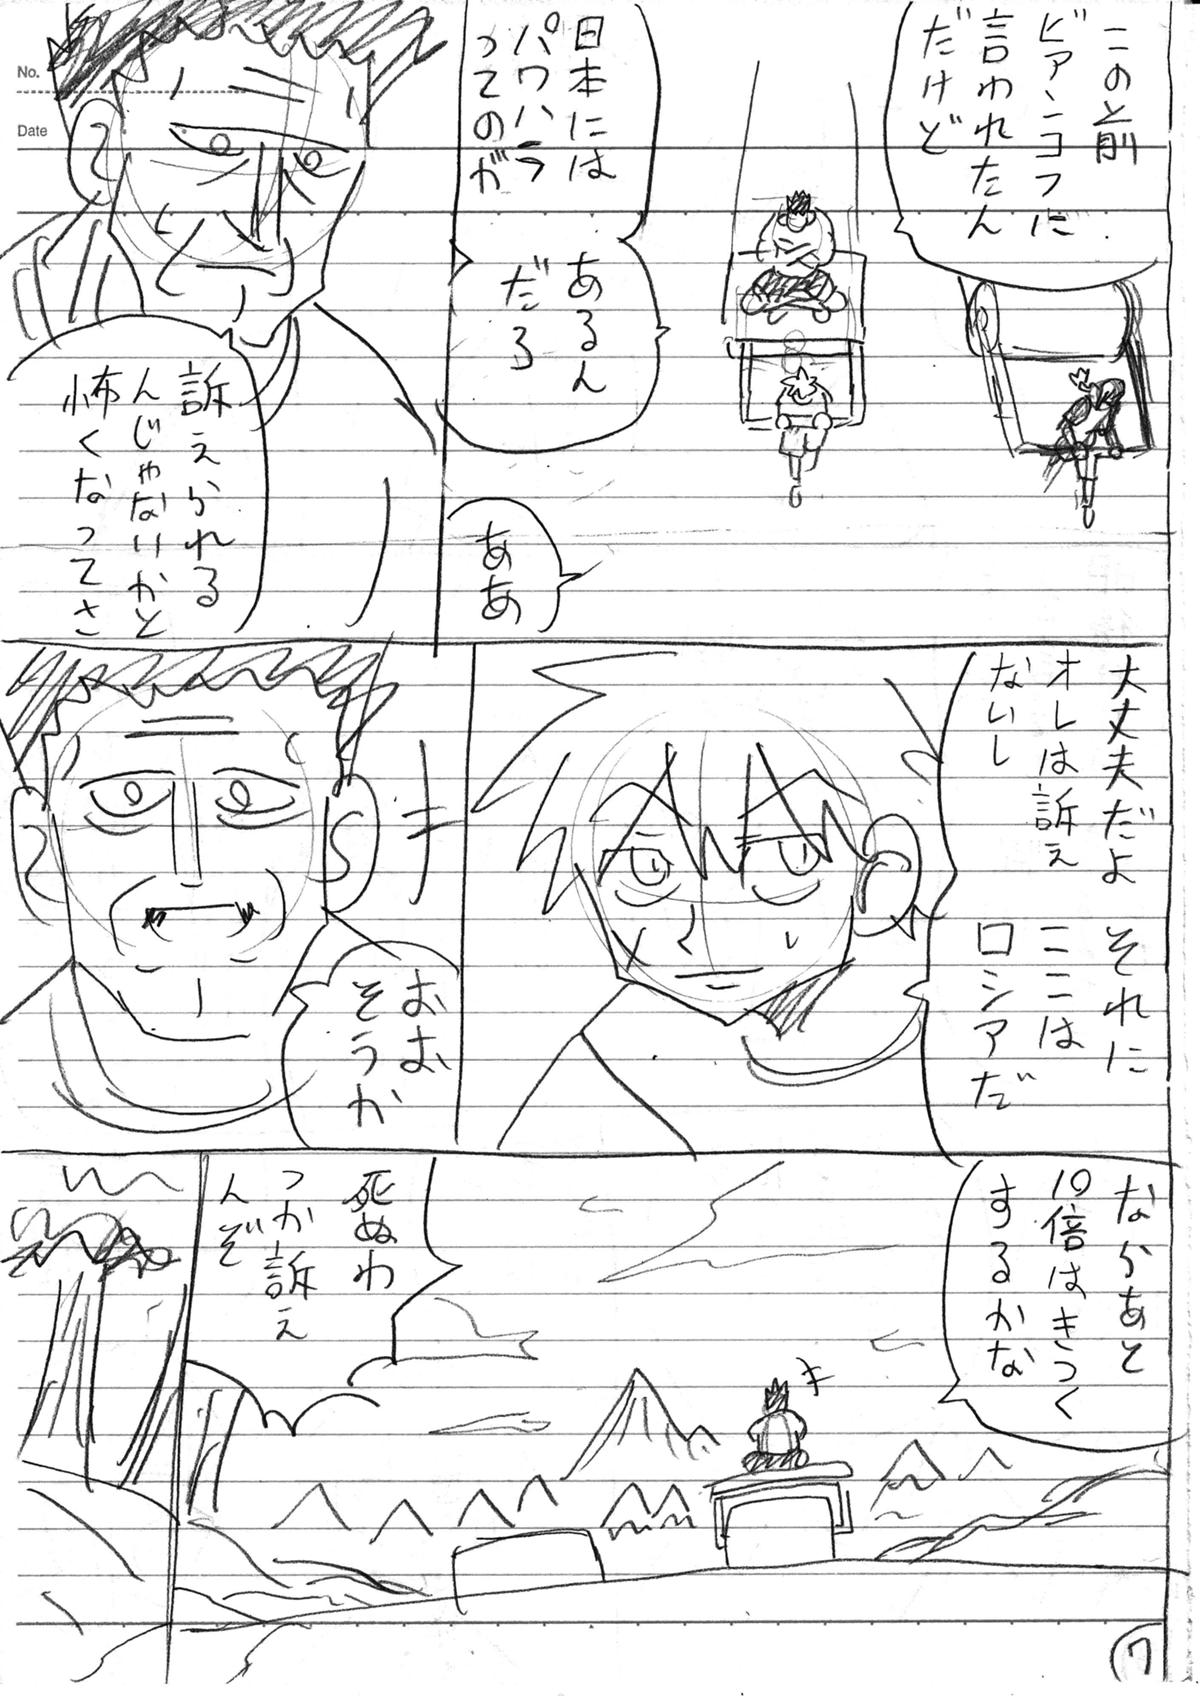 No.
Date
この前
ビアンコフに
言われたん
だけど
日本には
パワハラ
ってのが
あるん
だろ
ああ
訴えられる
んじゃないかと
怖くなってさ
大丈夫だよ
オレは訴え
ないし
それに
ここは
ロシアだ
おお
そうか
ならあと
10倍はきつく
するかな
死ぬわ
つか訴え
んぞ
7